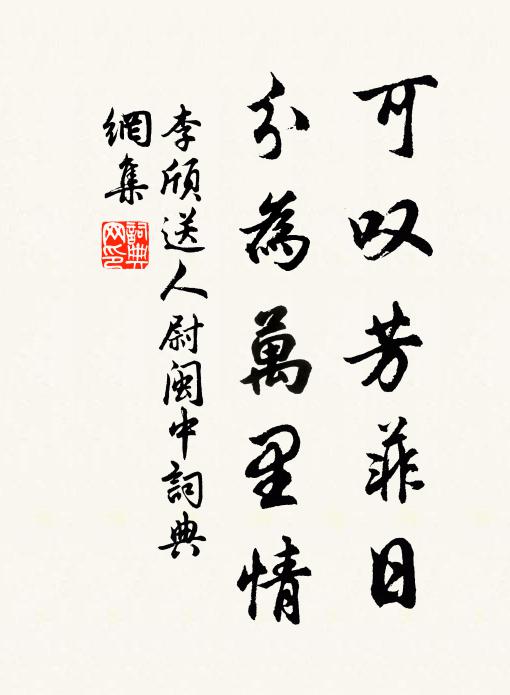 可叹芳菲日
分為萬里情
李頎送人尉閩中詞典
網集
詞典
网印